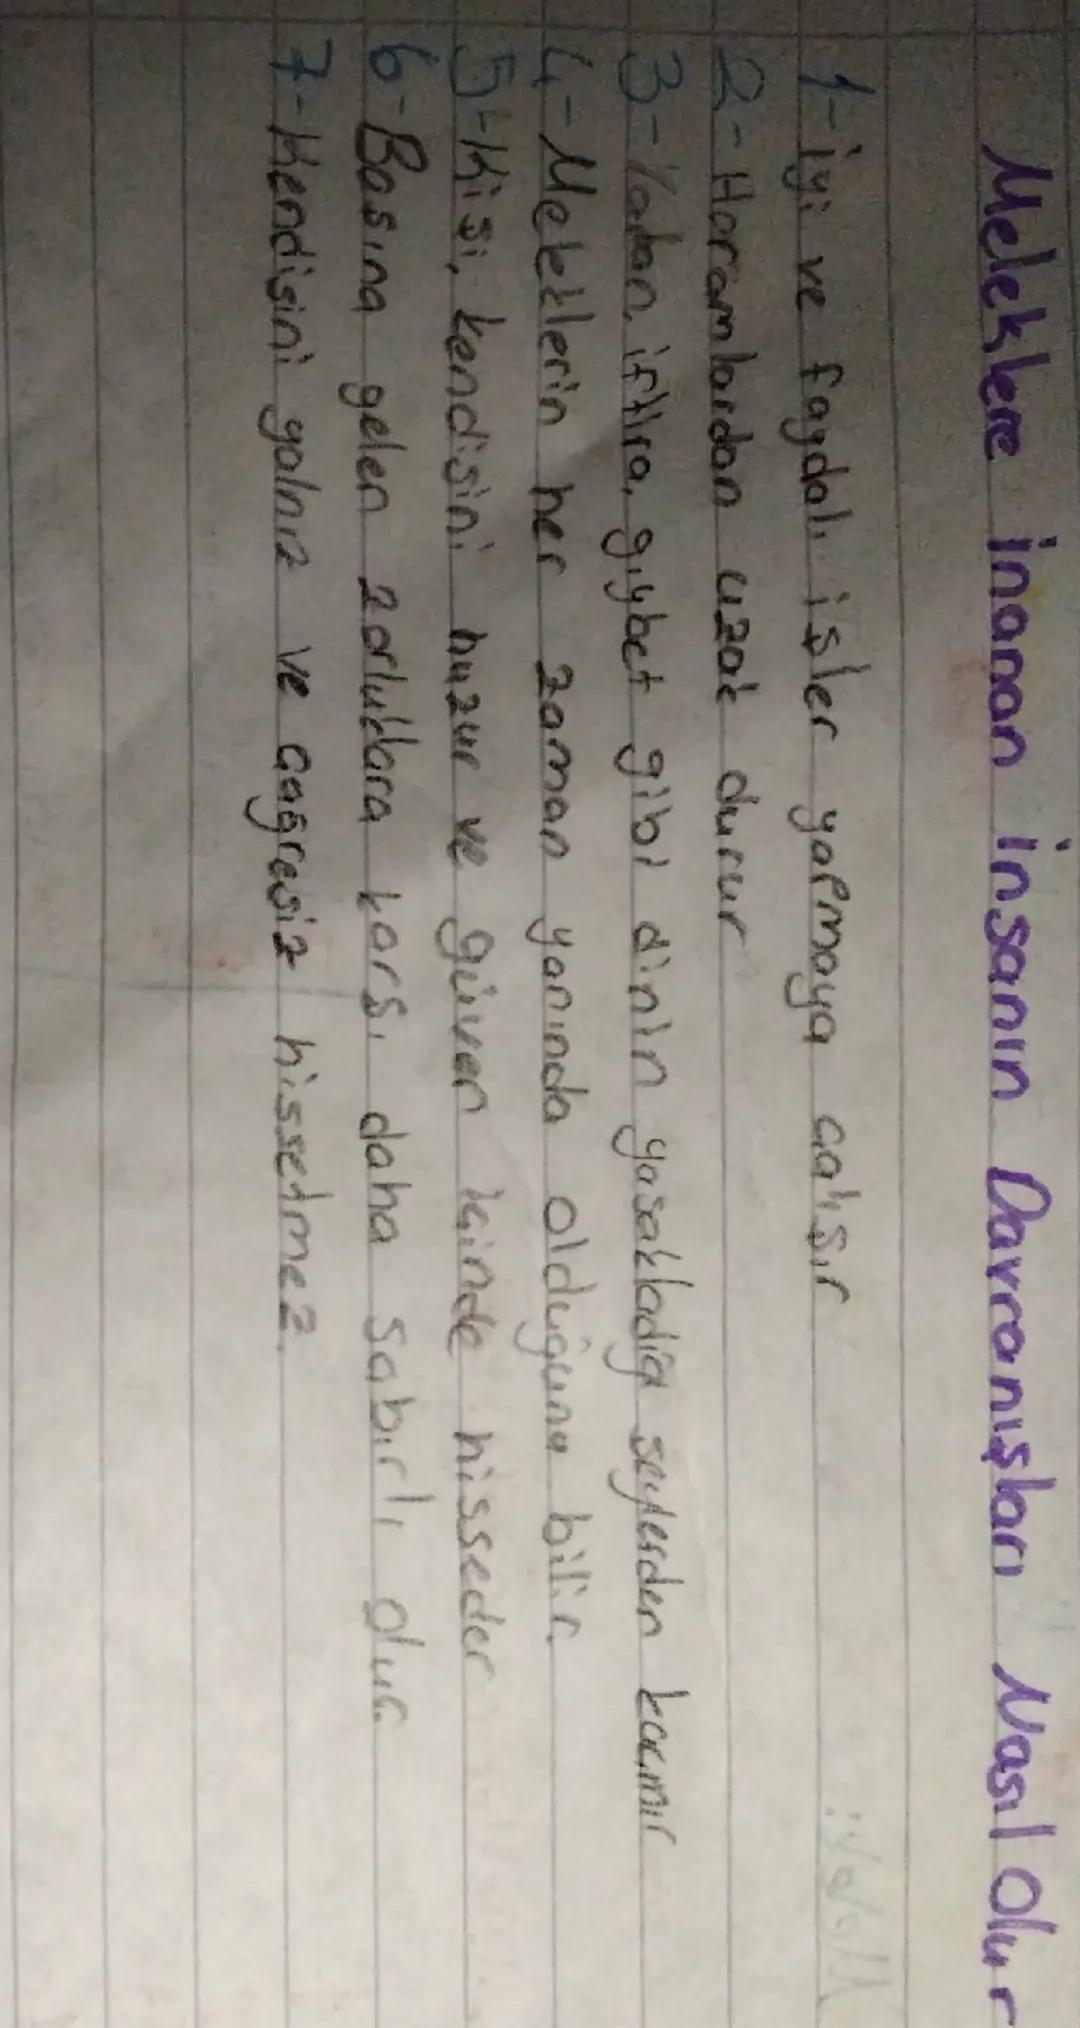 Meleklere inanan insanın Davranışları Nasıl Olur
1-İyi ve faydalı işler yapmaya çalışır
2-Haramlardan uzak durur
3-Yalan, iftira, gıybet gibi dinin yasakladığı şeylerden kaçınır
4-Meleklerin her zaman yanında olduğunu bilir.
5-Kişi, kendisini huzur ve güven içinde hisseder
6-Başına gelen zorluklara karşı daha sabırlı olur.
7-Kendisini yalnız ve çağresiz hissetmez.